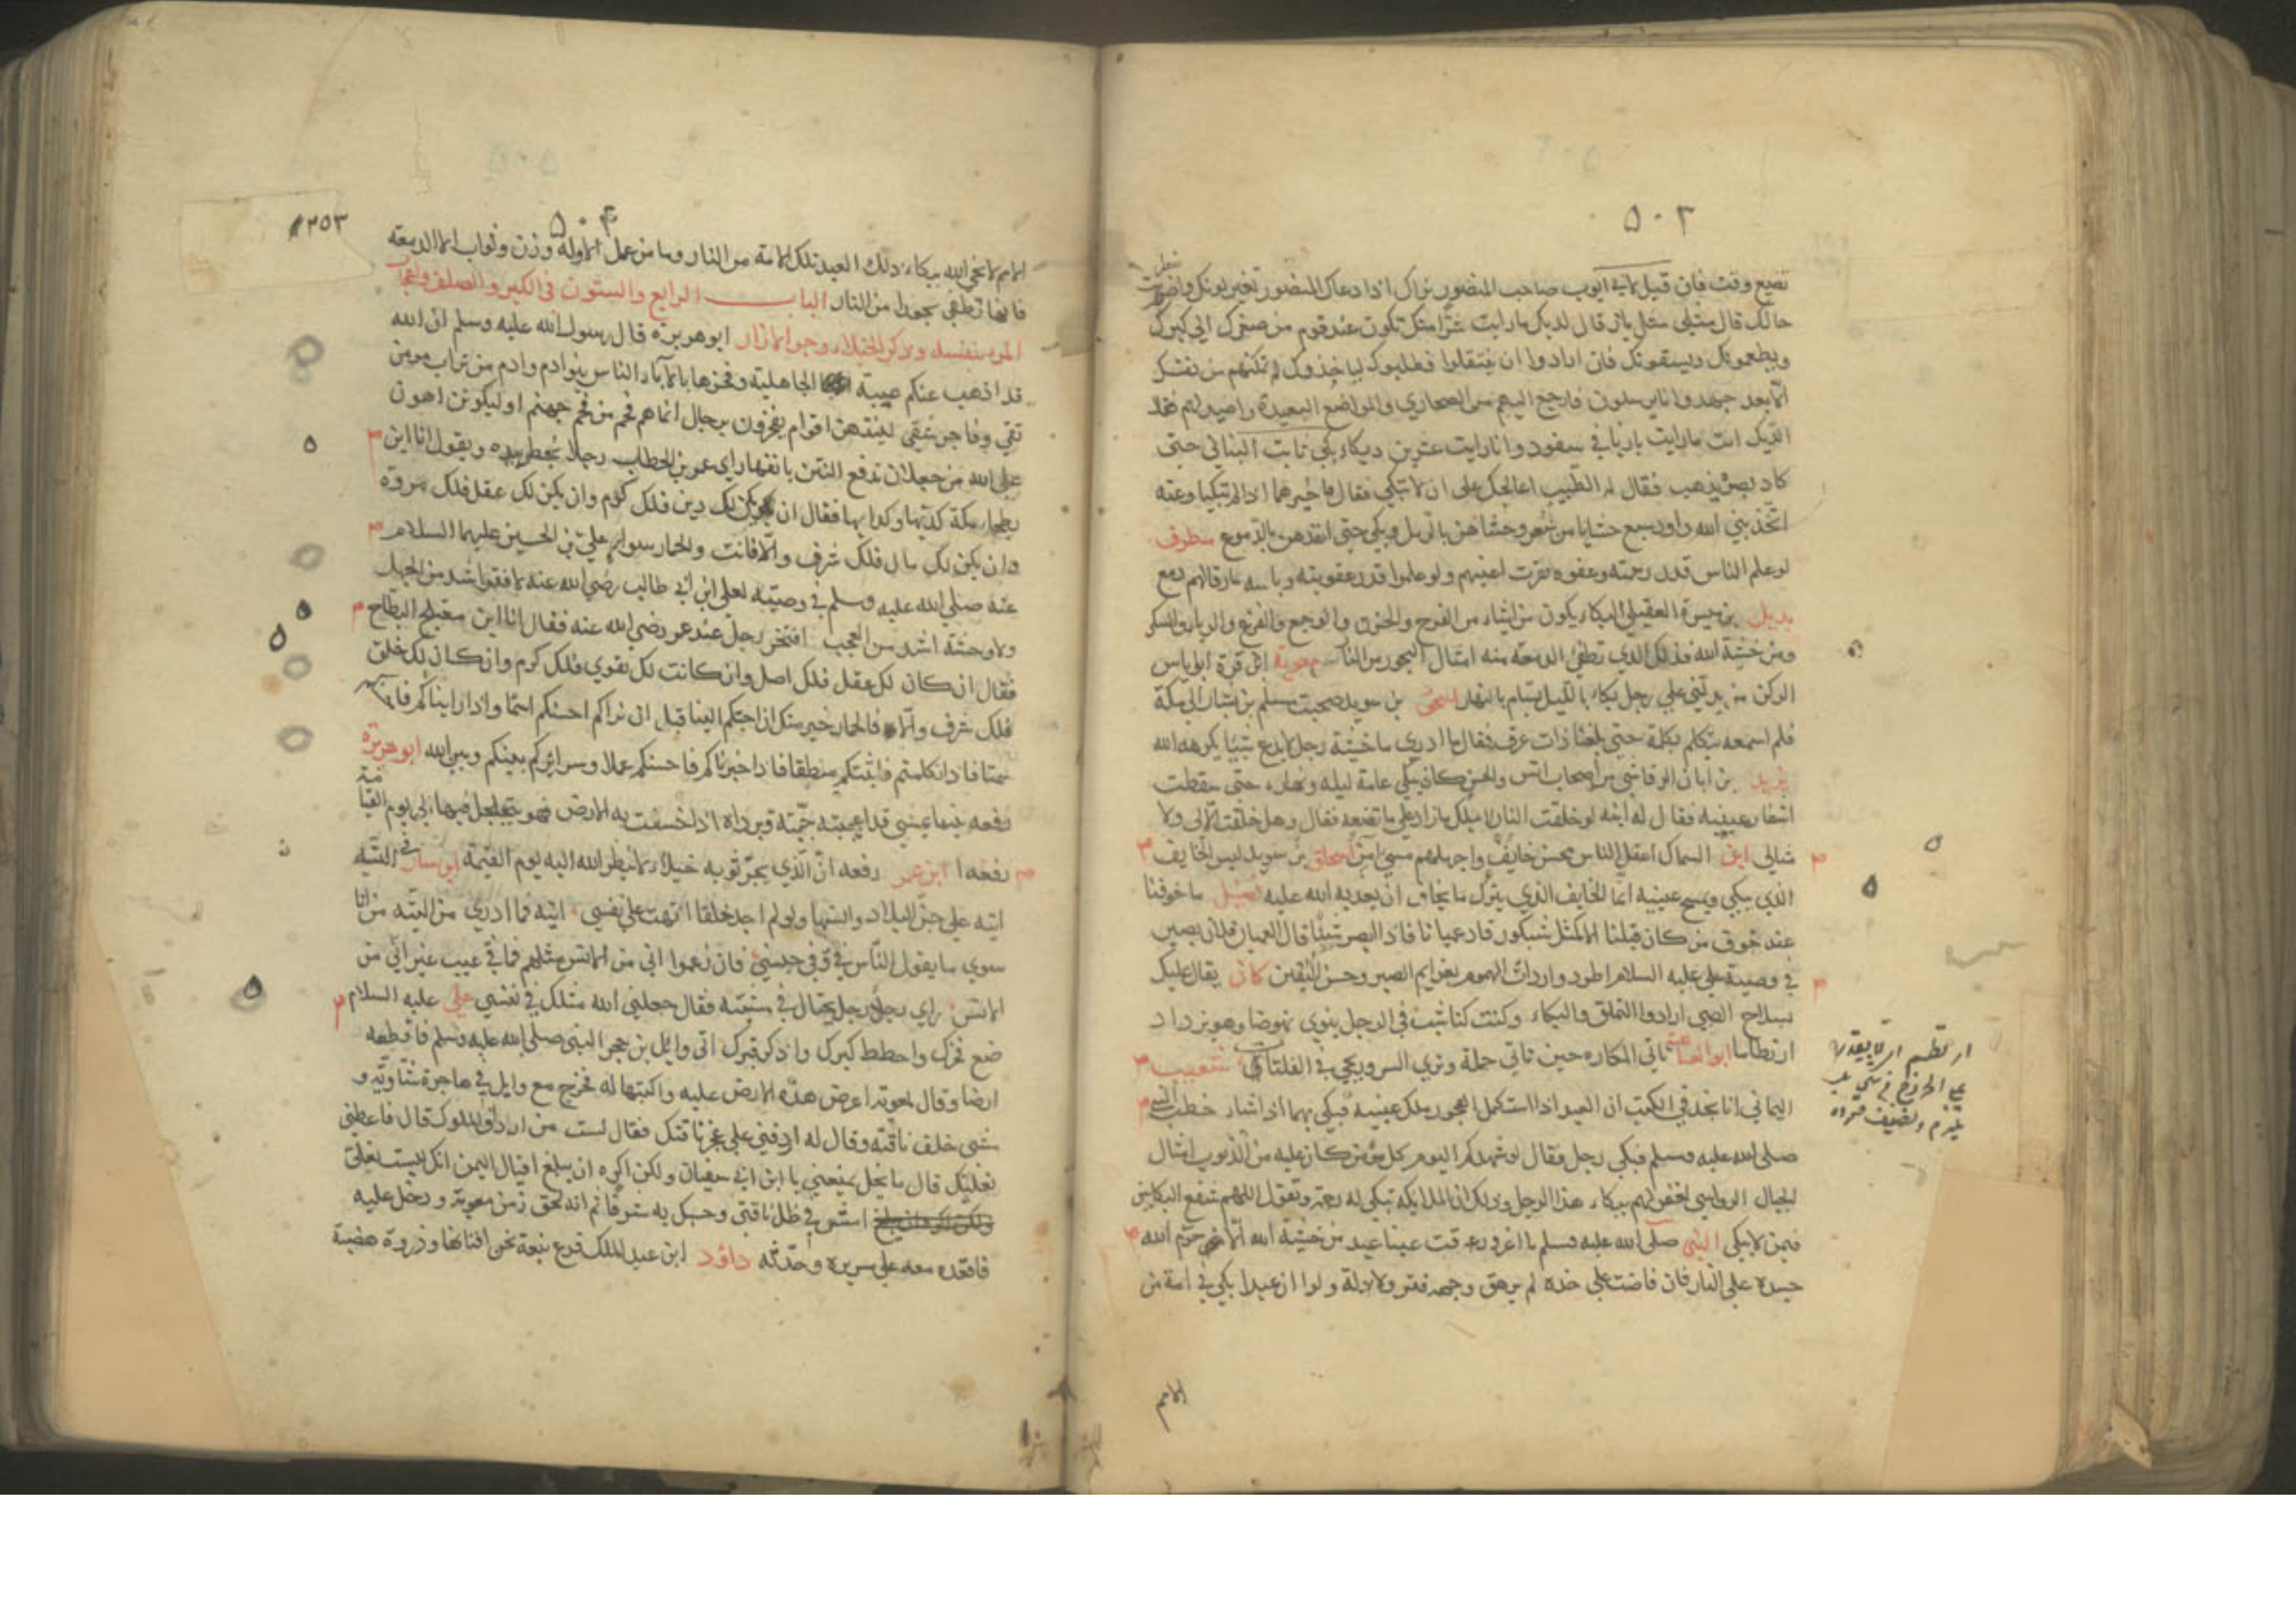 ٥٠٢
تضيع وقت فان قيل لابي ايوب صاحب المنصور نراك اذا دعاك المنصور تغير لونك واضطربت
حالك قال مثلي مثل باز قال لديك ما رايت شرا منك تكون عند قوم من صغرك الي كبرك
ويطعمونك ويسقونك فان ارادوا ان ينتقلوا فطلبوك لياخذوك لم تمكنهم من نفسك
الا بعد جهد وانا يرسلون فارجع اليهم من الصحاري والمواضع البعيدة واصيد لهم فقال
الديك انت ما رايت بازيا في سفود وانا رايت عشرين ديكا بكي ثابت البناني حتي
كاد بصره يذهب فقال له الطبيب اعالجك علي ان لا تبكي فقال ما خيرهما اذا لم تبكيا وعنه
اتخذ نبي الله داود سبع حشايا من شعر وحشاهن بالرمل وبكي حتي انفذهن بالدموع مطرف
لو علم الناس قدر رحمته وعفوه لقرت اعينهم ولو علموا قدر عقوبته وباسه ما رقا لهم دمع
بديل بن ميسرة العقيلي البكاء يكون من اشياء من الفرح والحزن والوجع والفزع والرياء والسكر
ومن خشية الله فذلك الذي تطفي الدمعة منه امثال البحور من النار معوية ابن قرة ابو اياس
الركن من يدلني علي رجل بكاء بالليل بسام بالنهار اسحق بن سويد صحبت مسلم بن يسار الي مكة
فلم اسمعه يتكلم بكلمة حتي بلغنا ذات عرق فقال ما ادري ما خشية رجل لا يدع شيئا يكرهه الله
يزيد بن ابان الرقاشي من اصحاب انس والحسن كان يبكي عامة ليله ونهاره حتي سقطت
اشفار عينيه فقال له ابنه لو خلقت النار لاجلك ما زاد علي ما تصنعه فقال وهل خلقت الا لي ولا
مثالي ابن السماك اعقل الناس محسن خايف واجهلهم مسيئ امن اسحاق بن سويد ليس الخايف
الذي يبكي ويمسح عينيه انما الخايف الذي يترك ما يخاف ان يعذبه الله عليه فضيل ما خوفنا
عند خوف من كان قبلنا الا كمثل شبكور قاد عميانا فاذا ابصر شيئا قال العميان فلان بصير
في وصية علي عليه السلام اطرد واردات الهموم بعزايم الصبر وحسن اليقين كان يقال عليك
بسلاح الصبي ارادوا التملق والبكاء وكنت كناشب في الوحل ينوي نهوضا وهو يزداد
ارتطاما ابو العتاهية تاتي المكاره حين تاتي جملة وتري السرور يجي في الفلتات شعيب
اليماني انا نجد في الكتب ان العبد اذا استكمل الفجور ملك عينيه فبكي بهما اذا شاء خطب النبي
صلي الله عليه وسلم فبكي رجل فقال لو شهدكم اليوم كل مؤمن كان عليه من الذنوب امثال
الجبال الرواسي لغفر لهم ببكاء هذا الرجل وذلك ان الملايكة تبكي له رحمة وتقول اللهم شفع البكايين
فيمن لا يبكي النبي صلي الله عليه وسلم ما اغرورقت عينا عبد من خشية الله الا حرم الله
جسده علي النار فان فاضت علي خده لم يرهق وجهه قتر ولا ذلة ولو ان عبدا بكي في امة من
ارتطم امر لا يقدر
علي الخروج
الامم
٥٠٣
٢٥٣
الامم لانجي الله ببكاء ذلك العبد تلك الامة من النار وما من عمل الا وله وزن وثواب الا الدمعة
فانها تطفي بحورا من النار الباب الرابع والستون في الكبر والصلف واعجاب
المرء بنفسه وذكر الخيلاء وجر الازار ابو هريرة قال رسول الله عليه وسلم ان الله
قد اذهب عنكم عبية الجاهلية وفخرها بالاباء الناس بنو ادم وادم من تراب مومن
تقي وفاجر شقي لينتهن اقوام يفخرون برجال انما هم فحم من فحم جهنم او ليكونن اهون
علي الله من جعلان تدفع النتن بانفها راي عمر بن الخطاب رجلا يخطر بيده ويقول انا ابن
بطحاء مكة كديها وكدايها فقال ان يكن لك دين فلك كرم وان يكن لك عقل فلك مروة
وان يكن لك مال فلك شرف والا فانت والحمار سواء علي بن الحسين عليهما السلام
عنه صلي الله عليه وسلم في وصيته لعلي ابن ابي طالب رضي الله عنه لا فقر اشد من الجهل
ولا وحشة اشد من العجب افتخر رجل عند عمر رضي الله عنه فقال انا ابن معتلج البطاح
فقال ان كان لك عقل فلك اصل وان كانت لك تقوي فلك كرم وان كان لك خلق
فلك شرف والا فالحمار خير منك ان احبكم الينا قبل ان نراكم احسنكم اسما واذا رايناكم فاحسنكم
سمتا فاذا تكلمتم فابينكم منطقا فاذا اخبرناكم فاحسنكم عملا وسرايركم بينكم وبين الله ابو هريرة
رفعه بينما يمشي قد اعجبته جمته وبرداه اذ خسفت به الارض فهو يتجلجل فيها الي يوم القيامة
رفعه ا ابن عمر رفعه ان الذي يجر ثوبه خيلاء لا ينظر الله اليه يوم القيمة ابن يسار في التيه
اتيه علي جن البلاد وانسها ولو لم اجد خلقا لتهت علي نفسي اتيه فما ادري من التيه من انا
سوي ما يقول الناس في وفي جنسي فان زعموا اني من الانس مثلهم فما في عيب غير اني من
الانس راي رجل رجلا يختال في مشيته فقال جعلني الله مثلك في نفسي علي عليه السلام
ضع فخرك واحطط كبرك واذكر قبرك اتي وايل بن حجر النبي صلي الله عليه وسلم فاقطعه
ارضا وقال لمعوية اعرض هذه الارض عليه واكتبها له فخرج مع وايل في هاجرة شاوية و
مشي خلف ناقته وقال له اردفني علي عجز ناقتك فقال لست من ارداف الملوك قال فاعطني
نعليك قال ما بخل يمنعني يا ابن ابي سفيان ولكن اكره ان يبلغ اقيال اليمن انك لبست نعلي
ولكن اكره ان يبلغ امش في ظل ناقتي وحسبك به شرفا ثم انه لحق زمن معوية ودخل عليه
فاقعده معه علي سريره وحدثه داؤد ابن عبد الملك فرع نبعة نحن افنانها وذروة هضبة